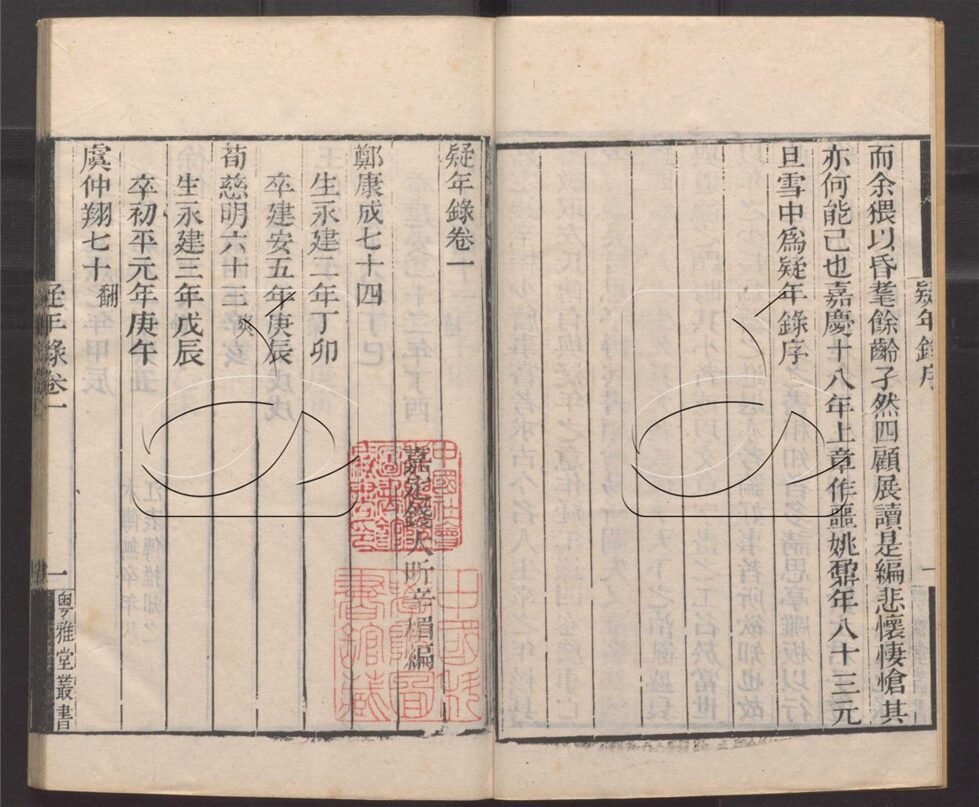 而余猥以昏耄餘齡孑然四顧展讀是編悲懷悽愴其
亦何能已也嘉慶十八年上章作噩姚鼐年八十三元
旦雪中爲疑年錄序
疑年錄序
一
疑年錄卷一
嘉定錢大昕辛楣編
鄭康成七十四
生永建二年丁卯
卒建安五年庚辰
荀慈明六十三爽
生永建三年戊辰
卒初平元年庚午
虞仲翔七十翻
疑年錄卷一
一
粵雅堂叢書